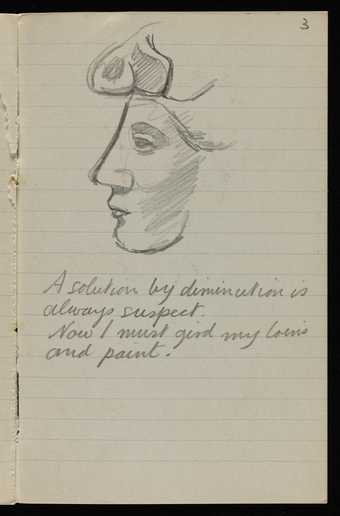 3
A solution by diminution is
always suspect.
Now I must gird my loins
and paint.